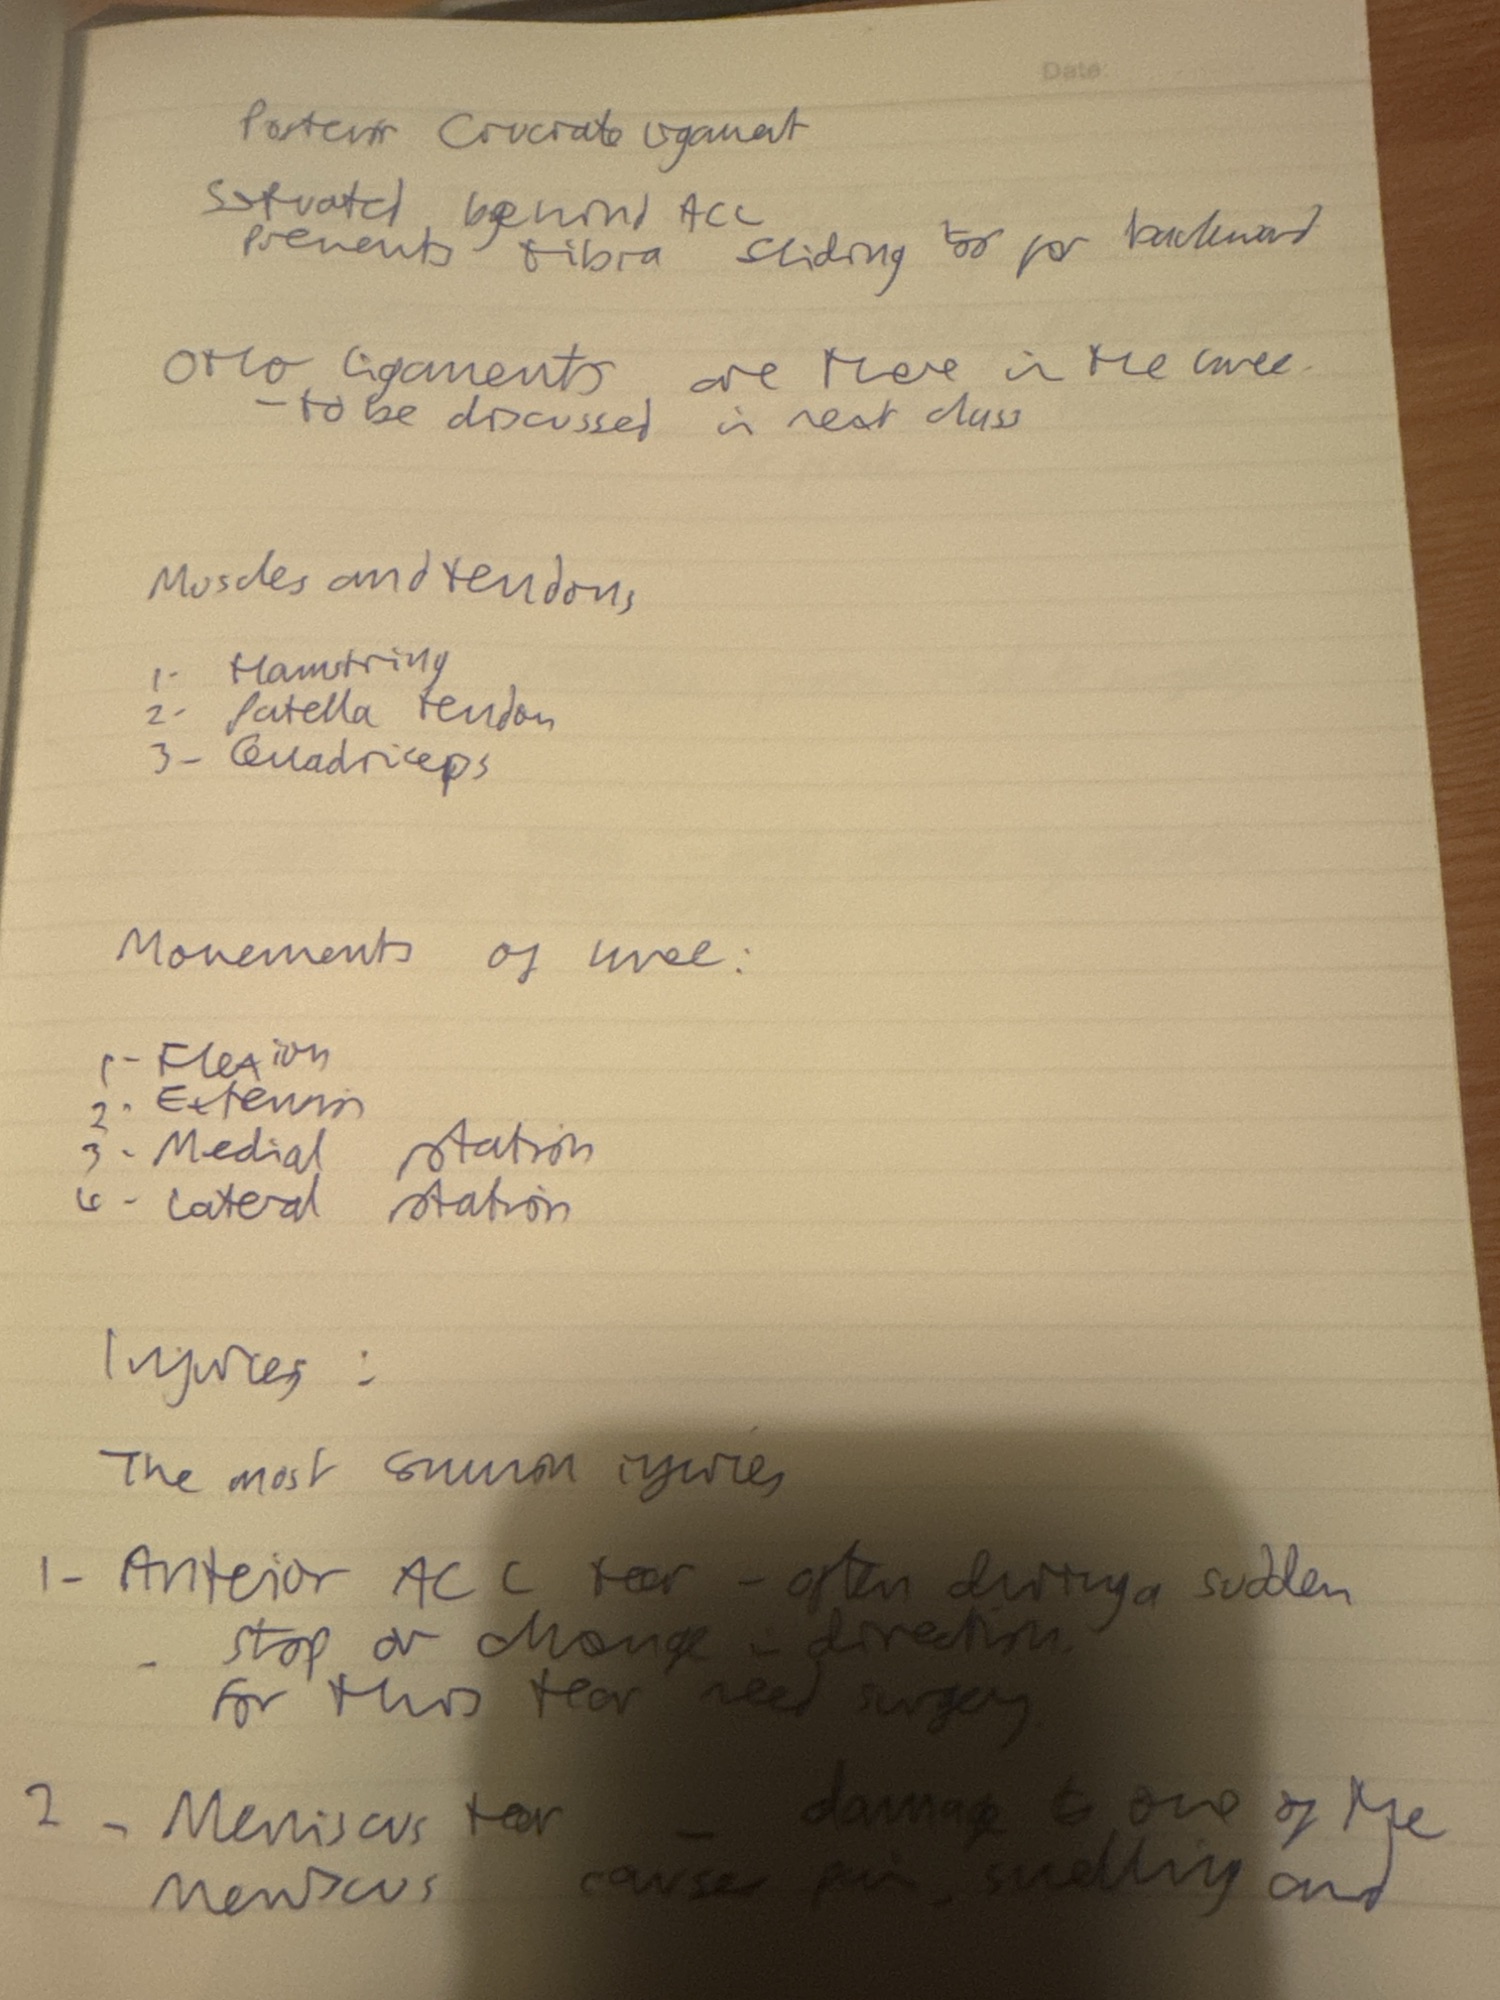 Date:
Posterior Cruciate ligament
Situated behind ACL
Prevents tibia sliding too far backward
Other ligaments are there in the knee.
- to be discussed in next class
Muscles and tendons
1- Hamstring
2- Patella tendon
3- Quadriceps
Movements of knee:
1- Flexion
2- Extension
3- Medial rotation
4- Lateral rotation
Injuries :
The most common injuries
1- Anterior ACL tear - often during a sudden
- stop or change in direction.
For this tear need surgery.
2 - Meniscus tear - damage to one of the
meniscus cause pain, swelling and